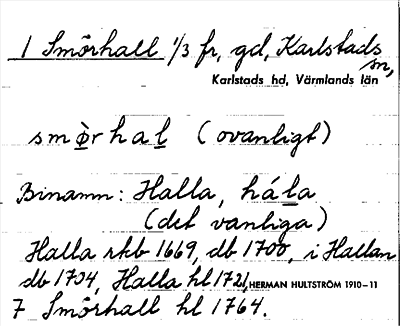 1 Smörhall 1/3 fr, gd, Karlstads
sn,
Karlstads hd, Värmlands län
smö̀rhal (ovanligt)
Binamn: Halla, hála
(det vanliga)
Halla rkb 1669, db 1700, i Hallan
db 1734, Halla hl 1721,
HERMAN HULTSTRÖM 1910–11
7 Smörhall hl 1764.